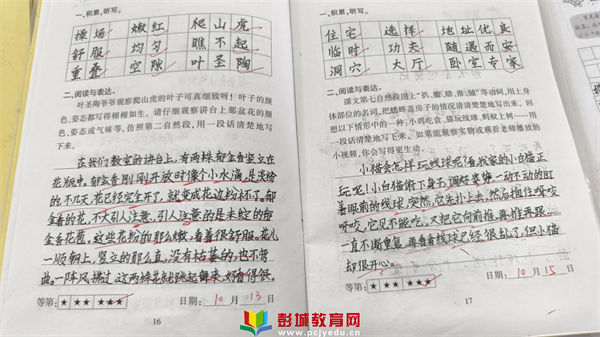 一、积累,听写。
操场 嫩红 爬山虎
舒服 均匀 瞧不起
重叠 空隙 叶圣陶
二、阅读与表达。
叶圣陶爷爷观察爬山虎的叶子可真细致呀！叶子的颜
色、姿态都写得栩栩如生。请仔细观察讲台上那盆花的颜
色、姿态或气味等,仿照第二自然段,用一段话清楚地写
下来。
在我们教室的讲台上,有两株郁金香竖立在
花瓶中。郁金香刚刚开放时像个小水滴,是淡粉
的。不几天,花已经完全开了,就变成花边粉杯了。郁
金香的花,不大引人注意,引人注意的是未绽的郁
金香花苞,这些花粉的那么嫩,看着很舒服。花儿
一顺朝上,竖立的那么直,没有枯萎的,也不弯
曲。一阵风拂过,这两株花就跳起舞来,好看得很。
等第: ★ ★★ ★★★ 日期: 10 月 13 日
16
一、积累,听写。
住宅 选择 地址优良
临时 功夫 随遇而安
洞穴 大厅 卧室 专家
二、阅读与表达。
课文第七自然段用上“扒、搬、踏、推、铺”等动词,用上身
体部位的名词,把蟋蟀盖房子的情况清清楚楚地写出来。回
想以下情形中的一种:小鸡吃食、猫玩线球、蚂蚁上树……用
几句话清清楚楚地写下来。如果能观察实物或观看老师播放的
小视频,你会写得更生动。
小猫会怎样玩线球呢?看我家的小白猫正
玩呢！小白猫俯下身子,
眼前的线球,突然,它先扑上去,然后抱住咬呀
咬呀,它见不能吃,又把它向前推,再推再跟……
一直不断重复,再看看线球已经很乱了,但小猫
却很开心。
等第: ★ ★★ ★★★ 日期: 10 月 15 日
17
彭城教育网
www.pcjyedu.cn